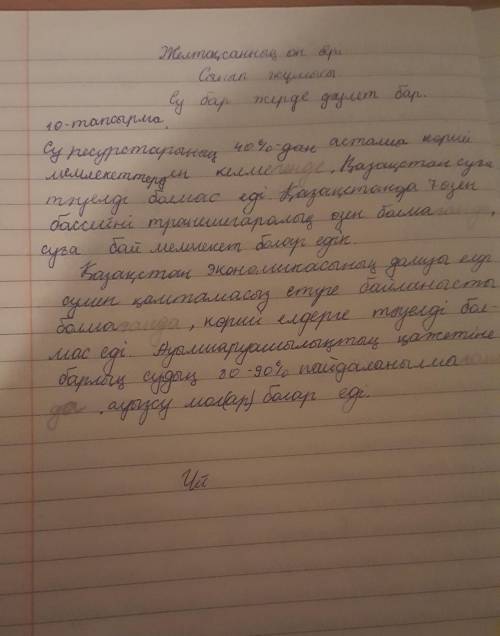 Желтоқсанның он бірі
Сынып жұмысы
Су бар жерде дәулет бар.
10-тапсырма.
Су ресурстарының 40%-дан астамы көрші
мемлекеттерден келмегенде, Қазақстан суға
тәуелді болмас еді. Қазақстанда 7 өзен
бассейні трансшегаралық өзен болмағанда,
суға бай мемлекет болар едік.
Қазақстан экономикасының дамуы елді
сумен қамтамасыз етуге байланысты
болмағанда, көрші елдерге тәуелді бол-
мас еді. Ауылшаруашылықтың қажетіне
барлық судың 80-90% пайдаланылмаған
да, ауызсу мол(ар) болар еді.
Үй